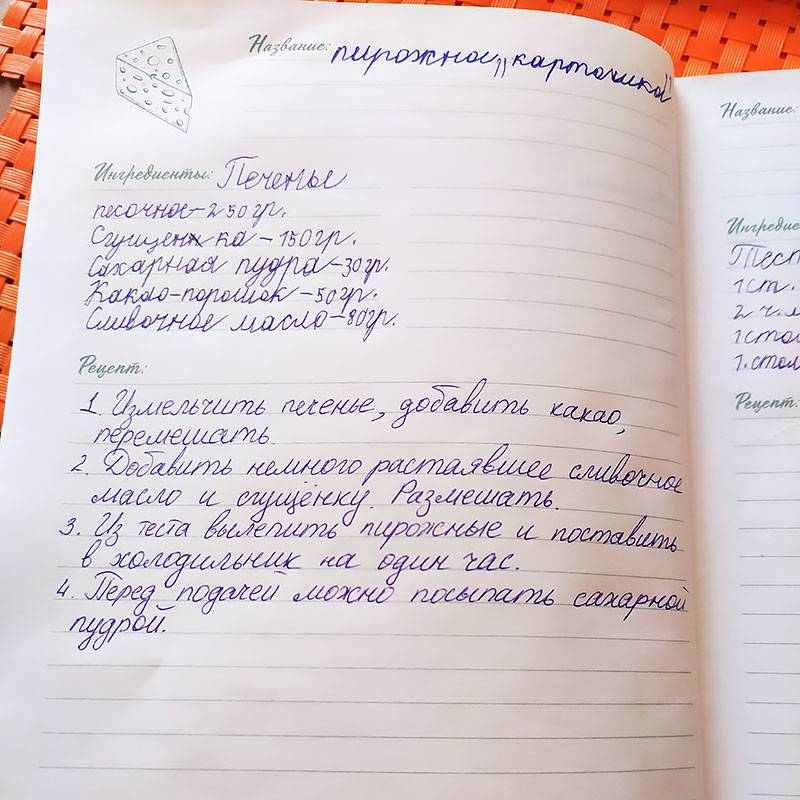 Название: пирожное „картошка"
Ингредиенты: Печенье
песочное-250гр.
Сгущенка-150гр.
Сахарная пудра-30гр.
Какао-порошок-50гр.
Сливочное масло-80гр.
Рецепт:
1. Измельчить печенье, добавить какао,
перемешать.
2. Добавить немного растаявшее сливочное
масло и сгущёнку. Размешать.
3. Из теста вылепить пирожные и поставить
в холодильник на один час.
4. Перед подачей можно посыпать сахарной
пудрой.
Название:
Ингредие
Тест
1 ст.
2 ч.л
1 стол
1. стол
Рецепт: